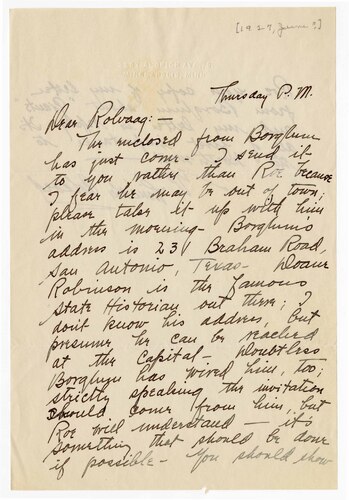 [1927, June ?]
Thursday P. M.
Dear Rolvaag: —
The enclosed from Borglum
has just come — I send it
to you rather than Roe because
I fear he may be out of town;
please take it up with him
in the morning — Borglums
address is 231 Braham Road,
San Antonio, Texas — Doane
Robinson is the famous
State Historian out there; I
don't know his address, but
presume he can be reached
at the Capital — Doubtless
Borglum has wired him, too;
strictly speaking the invitation
should come from him, but
Roe will understand — it's
something that should be done
if possible — You should show